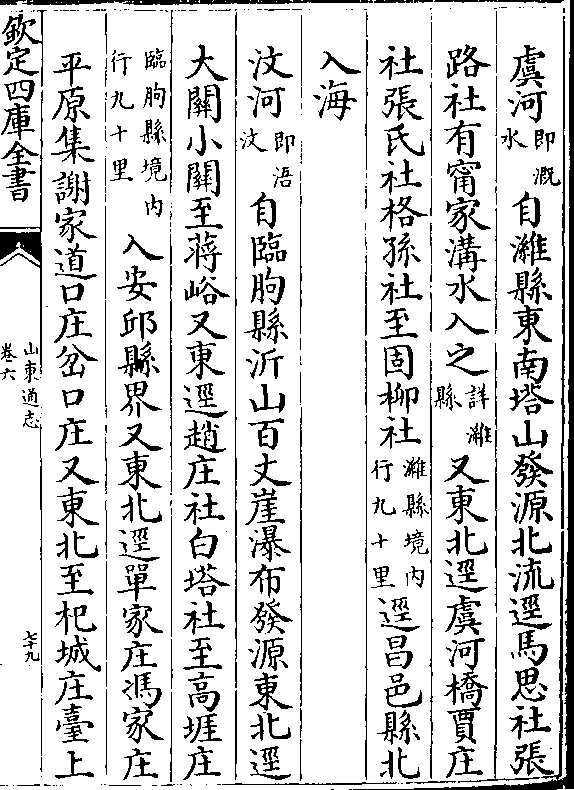 虞河即溉水自濰縣東南塔山發源北流逕馬思社張
路社有甯家溝水入之詳濰縣又東北逕虞河橋賈庄
社張氏社格孫社至固柳社濰縣境內行九十里逕昌邑縣北
入海
汶河即浯汶自臨朐縣沂山百丈崖瀑布發源東北逕
大關小關至蔣峪又東逕趙庄社白塔社至高堐庄
臨朐縣境內行九十里入安邱縣界又東北逕單家庄馮家庄
平原集謝家道口庄岔口庄又東北至杞城庄臺上
欽定四庫全書
山東通志
卷六
七十九